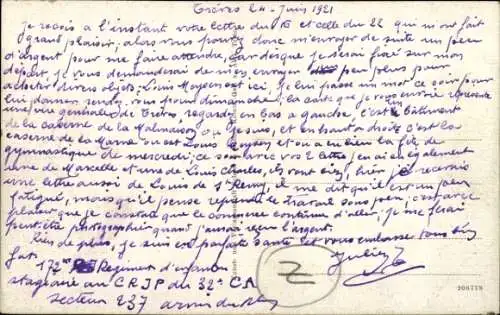 Trèves 24 - Juin 1921
Je reçois à l'instant votre lettre du 18 et celle du 22 qui m'ont fait
grand plaisir; alors vous pourrez donc m'envoyer de suite un peu
d'argent pour me faire attendre, car dès que je serai fixé sur mon
départ, je vous demanderai de m'en envoyer un peu plus pour
acheter divers objets; Louis est ici, je lui passe un mot ce soir pour
lui donner rendez-vous pour dimanche; la carte que je vous envoie représente
une vue générale de Trèves, regardez en bas à gauche, c'est le bâtiment
de la caserne de la Malmaison où je suis, et en haut à droite c'est la
caserne de la Marne où est Louis et où a eu lieu la fête de
gymnastique de mercredi; ce soir avec vos 2 lettres j'en ai eu également
une de Marcelle et une de Louis Charles, ils vont bien, hier je recevais
une lettre aussi de Louis de St Remy, il me dit qu'il est un peu
fatigué, mais qu'il pense reprendre le travail sous peu, c'est avec
plaisir que je constate que le commerce continue d'aller, je me ferai
peut-être photographier quand j'aurai reçu l'argent.
Rien de plus, je suis en parfaite santé et vous embrasse tous bien
fort. Julien
172e Régiment d'
stagiaire au C R I P du 32e C A
secteur 237 armée du Rhin